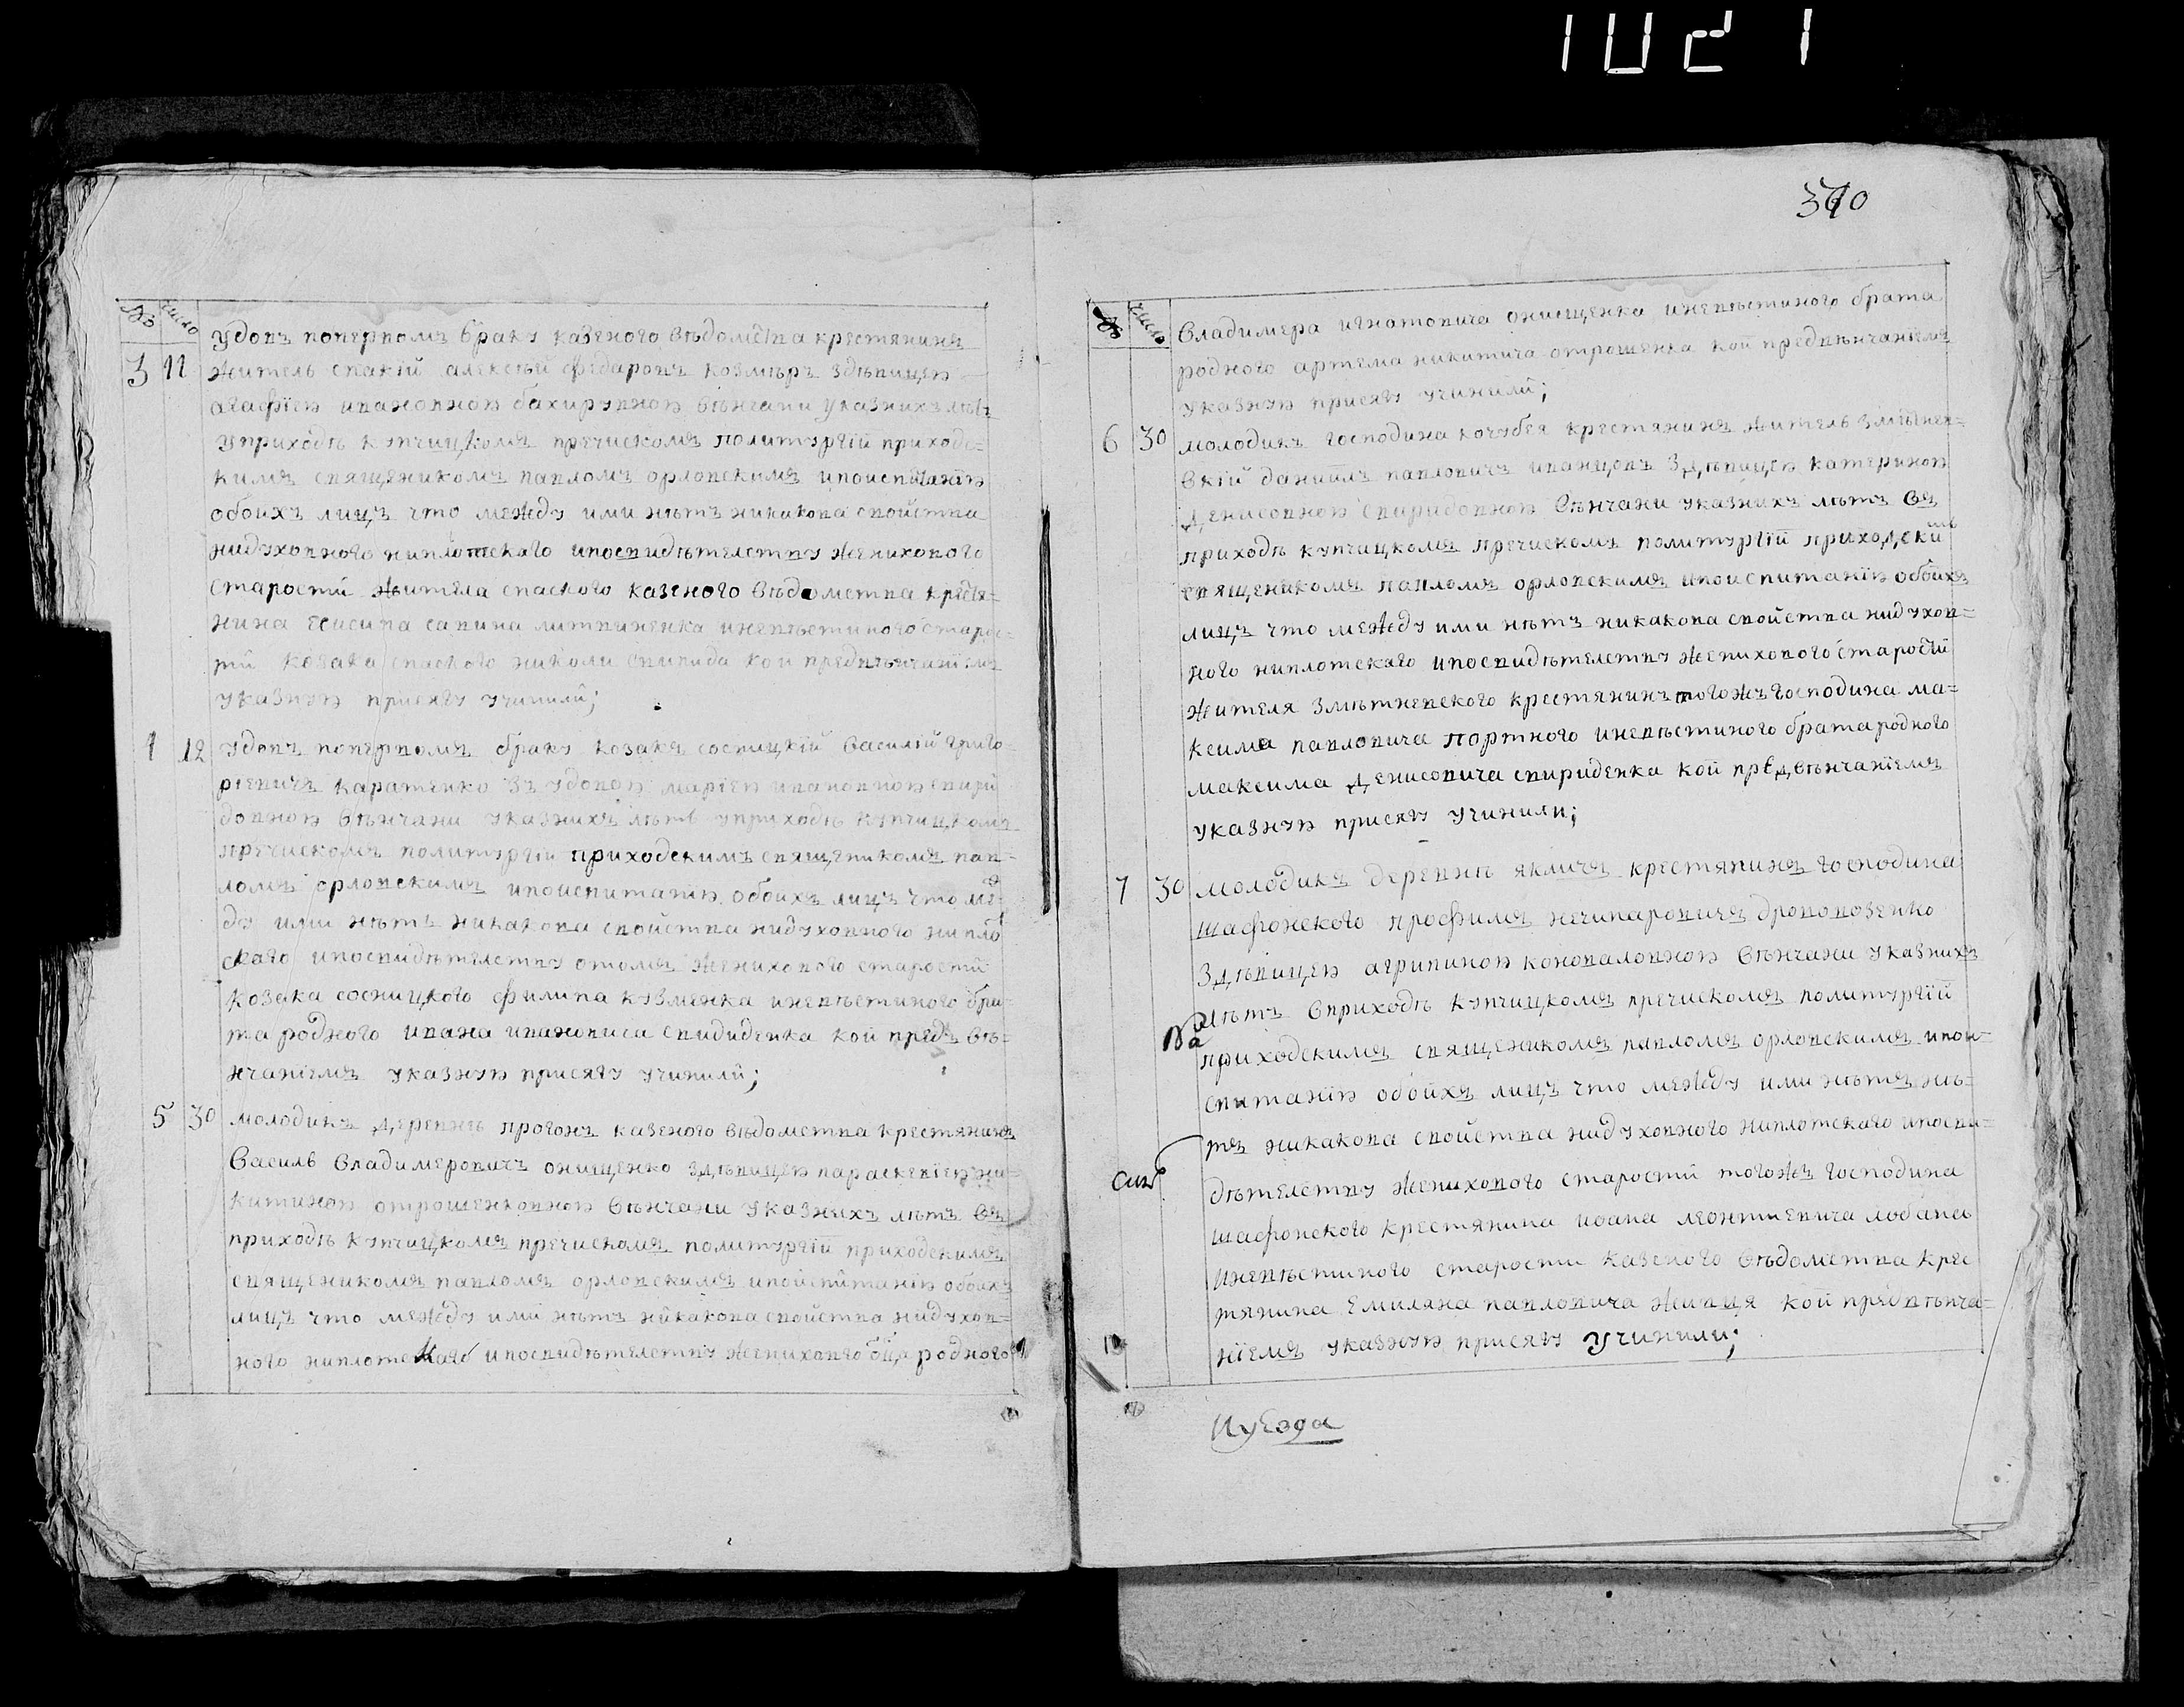 1021
370
№ число
3 11 Удовъ поперпомъ браку казеного вѣдомства крестянинъ
житель спаскій алексѣй федаровъ козмѣръ здѣвицею
агафіею ивановною бахирувною вѣнчани указнихъ лѣтъ
уприходѣ купчицкомъ пречискомъ политургій приходс=
кимъ священикомъ павломъ орловскимъ ипоиспитанію
обоихъ лицъ что между ими нѣтъ никакова свойства
нидуховного ниплотскаго ипосвидѣтелству женихового
старостй жителя спаского казеного вѣдомства крестя=
нина савина литвиненка иневѣстиного старос=
тй козака спаского николи кои предвѣнчаніемъ
указную присягу учинилй;
4 12 Удовъ поперпомъ браку козакъ сосницкій василій григо=
ріевичъ каратенко зъ удовою маріею ивановною спири
довною вѣнчани указнихъ лѣтъ уприходѣ купчицкомъ
пречискомъ политургій приходскимъ священикомъ пав=
ломъ орловскимъ ипоиспитанію обоихъ лицъ что меж
ду ими нѣтъ никакова свойства нидуховного нипло
скаго ипосвидѣтелству отомъ женихового старостй
козака сосницкого филипа кузменка иневѣстиного бра=
та родного ивана ивановиса спидиденка кой предъ вѣ=
нчаніемъ указную присягу учинилй;
5 30 молодикъ деревнѣ прогонъ казеного вѣдомства крестянинъ
Василь Владимеровичъ онищенко здѣвицею параскевіею ни=
китиною отрошенковною вѣнчани указнихъ лѣтъ въ
приходѣ купчицкомъ пречискомъ политургій приходскимъ
священикомъ павломъ орловскимъ ипоиспитанію обоихъ
лицъ что между ими нѣтъ никакова свойства нидухов=
ного ниплотскаго ипосвидѣтелству женихового родного
№ число
Владимера игнатовича онищенка иневѣстиного брата
родного артема никитича отрошенка кой предвѣнчаніемъ
указную присягу учинилй;
6 30 молодикъ господина кочубея крестянинъ житель змѣтнев=
вкій данійлъ павловичъ иванцовъ здѣвицею катериною
денисовною спиридовною вѣнчани указнихъ лѣтъ въ
приходѣ купчицкомъ пречискомъ политургій приходскимъ
священикомъ павломъ орловскимъ ипоиспитанію обоихъ
лицъ что между ими нѣтъ никакова свойства нидухов=
ного ниплотскаго ипосвидѣтелству жениховогo старостй
жителя змѣтневского крестянинъ тогожъ господина ма=
ксима павловича портного иневѣстиного брата родного
максима денисовича спириденка кой предвѣнчаніемъ
указную присягу учинили;
7 30 молодикъ деревнѣ якличъ крестянинъ господина
шафонского профимъ нечипаровичъ дроповозенко
здѣвицею агрипиною коноваловною вѣнчани указнихъ
лѣтъ вприходѣ купчицкомъ пречискомъ политургій
приходскимъ священикомъ павломъ орловскимъ ипои=
спитанію обойхъ лицъ что между ими нѣтъ нѣ=
тъ никакова свойства нидуховного ниплотскаго ипосви=
дѣтелству женихового старостй тогожъ господина
шафонского крестянина иоана леонтиевича лобана
иневѣстиного старости казеного вѣдомства крес
тянина Емиляна павловича живця кой предвѣнча=
ніемъ указную присягу учинили;
Иуезда